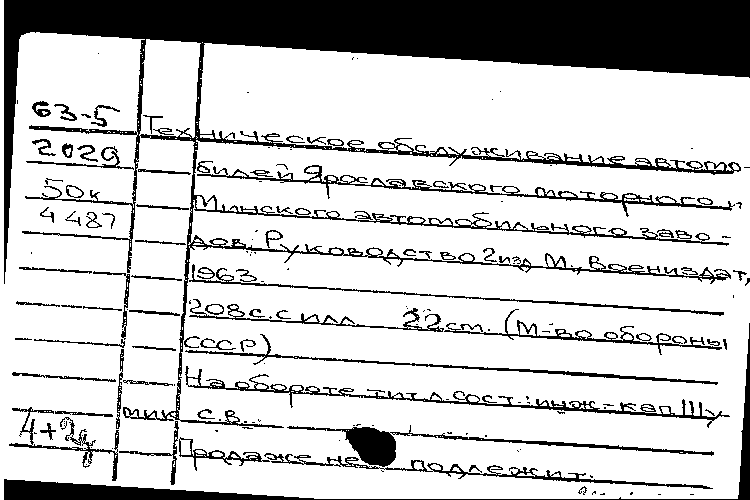 63-5
Техническое обслуживание автомо-
2029
билей Ярославского моторного и
50к
Минского автомобильного заво-
4487
дов. Руководство 2изд М., Воениздат,
1963.
208с. с илл 22cm. (М-во обороны
СССР)
На обороте титл. сост.: инж-кап Шу-
мик с.в.
4+2д
Продаже не подлежит.